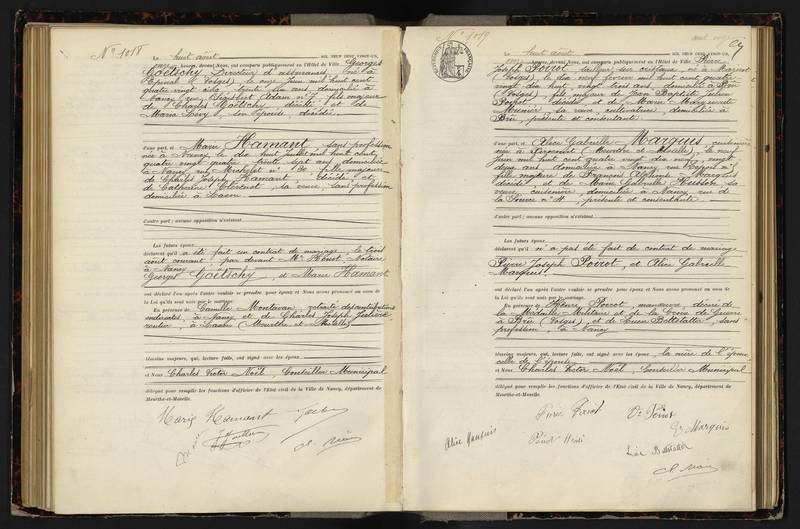 N° 1018
Le huit août MIL NEUF CENT VINGT-UN,
heures, devant Nous, ont comparu publiquement en l'Hôtel de Ville, Georges
Goetschy, Directeur d'assurances, né à
Epinal (Vosges), le onze Juin mil huit cent
quatre vingt cinq, trente six ans, domicilié à
Nancy, rue Sigisbert Adam n° 7, fils majeur
de Charles Goetschy, décédé et de
Marie Lévy, son épouse, décédée.
d'une part, et Marie Hamant, sans profession
née à Nancy, le dix huit juillet mil huit cent
quatre vingt quatre, trente sept ans, domiciliée
à Nancy, rue Michelet n° fille majeure
de Charles Joseph Hamant, décédé et
de Catherine sa veuve, sans profession
domiciliée à
d'autre part; aucune opposition n'existant.
Les futurs époux
déclarent qu'il a été fait un contrat de mariage, le trois
août courant, par devant Me notaire
à Nancy
Georges Goetschy, et Marie Hamant
ont déclaré l'un après l'autre vouloir se prendre pour époux et Nous avons prononcé au nom de
la Loi qu'ils sont unis par le mariage.
En présence de Camille retraité des contributions
indirectes, à Nancy et de Charles Joseph
rentier, à (Meurthe et Moselle)
témoins majeurs, qui, lecture faite, ont signé avec les époux
et Nous Charles Victor Noël, Conseiller Municipal
délégué pour remplir les fonctions d'officier de l'Etat civil de la Ville de Nancy, département de
Meurthe-et-Moselle.
Marie Hamant
N° 1019
Le huit août MIL NEUF CENT VINGT-UN,
onze heures, devant Nous, ont comparu publiquement en l'Hôtel de Ville, Pierre
Joseph Poirot, tailleur sur cristaux, né à
(Vosges), le dix neuf février mil huit cent quatre
vingt dix huit, vingt trois ans, domicilié à
(Vosges), fils majeur de Jean Baptiste
Poirot, décédé et de Marie Marguerite
sa veuve, cultivatrice, domiciliée à
présente et consentante
d'une part, et Alice Gabrielle Marquis, cuisinière
née à (Meurthe et Moselle), le neuf
Juin mil huit cent quatre vingt dix neuf, vingt
deux ans, domiciliée à Nancy, rue
fille majeure de François Alphonse Marquis
décédé, et de Marie Gabrielle Husson, sa
veuve, cuisinière, domiciliée à Nancy, rue de
la Source n° 4, présente et consentante.
d'autre part; aucune opposition n'existant.
Les futurs époux
déclarent qu'il n'a pas été fait de contrat de mariage
Pierre Joseph Poirot, et Alice Gabrielle
Marquis.
ont déclaré l'un après l'autre vouloir se prendre pour époux et Nous avons prononcé au nom de
la Loi qu'ils sont unis par le mariage.
En présence de Henri Poirot, manoeuvre, décoré de
la Médaille Militaire et de la Croix de Guerre
à (Vosges), et de sans
profession, à Nancy
témoins majeurs, qui, lecture faite, ont signé avec les époux, la mère de l'époux
celle de l'épouse
et Nous Charles Victor Noël, Conseiller Municipal
délégué pour remplir les fonctions d'officier de l'Etat civil de la Ville de Nancy, département de
Meurthe-et-Moselle.
Alice Marquis
Pierre Poirot
Poirot Henri
Vve Poirot
G. Marquis